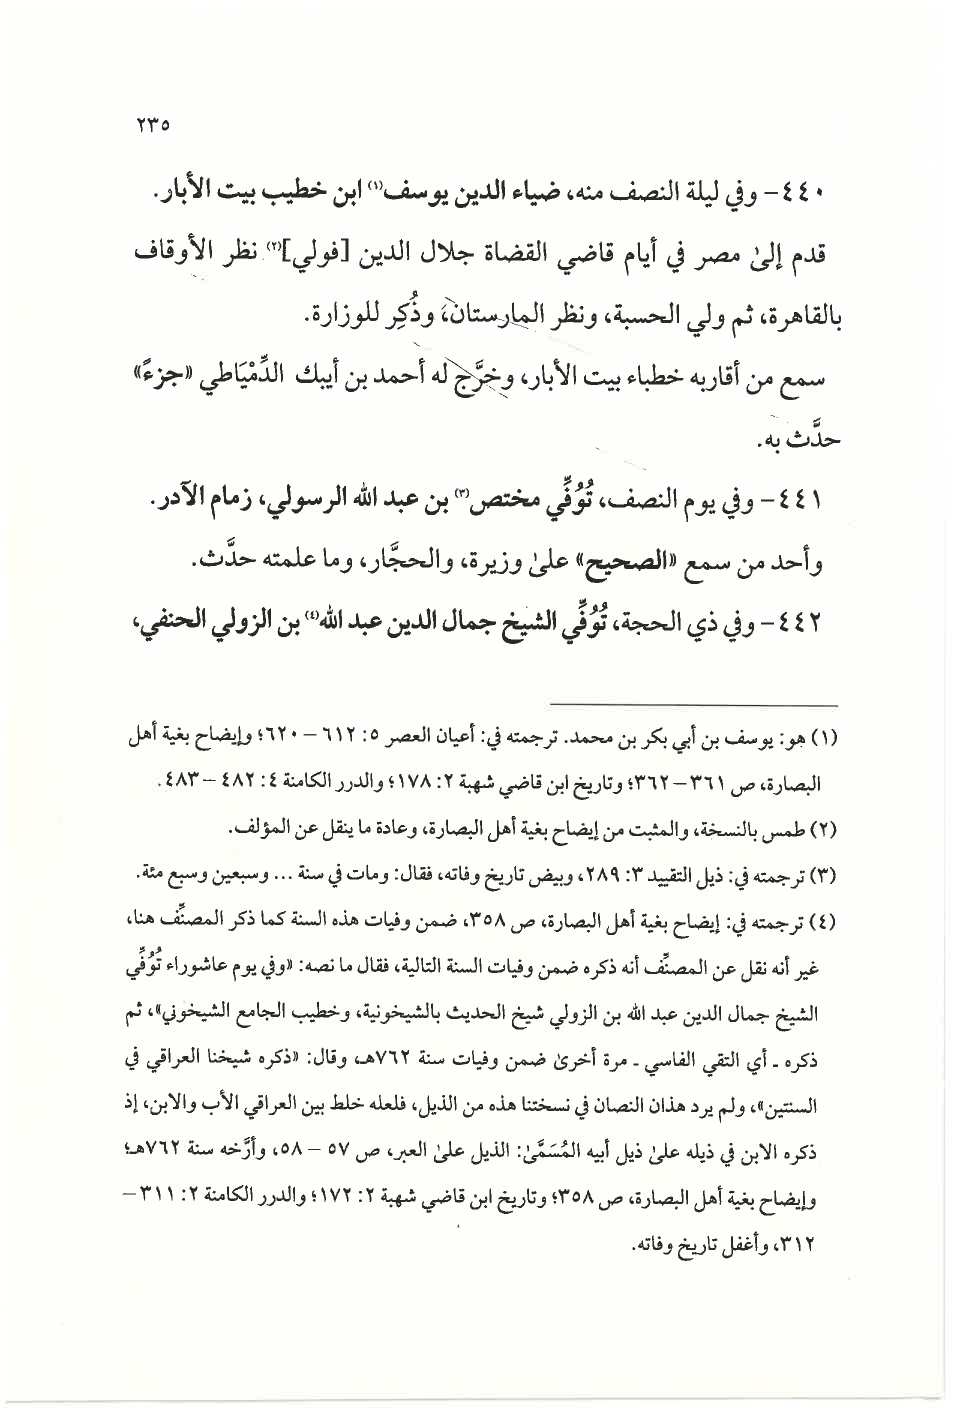 ٢٣٥
٤٤٠- وفي ليلة النصف منه، ضياء الدين يوسف(١) ابن خطيب بيت الأبار.
قدم إلىٰ مصر في أيام قاضي القضاة جلال الدين [فولي](٢) نظر الأوقاف
بالقاهرة، ثم ولي الحسبة، ونظر المارستان، وذُكِر للوزارة.
سمع من أقاربه خطباء بيت الأبار، وخرَّج له أحمد بن أيبك الدِّمْيَاطي «جزءً»
حدَّث به.
٤٤١- وفي يوم النصف، تُوُفِّي مختص(٣) بن عبد الله الرسولي، زمام الآدر.
وأحد من سمع «الصحيح» علىٰ وزيرة، والحجَّار، وما علمته حدَّث.
٤٤٢- وفي ذي الحجة، تُوُفِّي الشيخ جمال الدين عبد الله(٤) بن الزولي الحنفي،
(١) هو: يوسف بن أبي بكر بن محمد. ترجمته في: أعيان العصر ٥: ٦١٢ – ٦٢٠؛ وإيضاح بغية أهل
البصارة، ص ٣٦١ – ٣٦٢؛ وتاريخ ابن قاضي شهبة ٢: ١٧٨؛ والدرر الكامنة ٤: ٤٨٢ – ٤٨٣.
(٢) طمس بالنسخة، والمثبت من إيضاح بغية أهل البصارة، وعادة ما ينقل عن المؤلف.
(٣) ترجمته في: ذيل التقييد ٣: ٢٨٩، وبيض تاريخ وفاته، فقال: ومات في سنة ... وسبعين وسبع مئة.
(٤) ترجمته في: إيضاح بغية أهل البصارة، ص ٣٥٨، ضمن وفيات هذه السنة كما ذكر المصنِّف هنا،
غير أنه نقل عن المصنِّف أنه ذكره ضمن وفيات السنة التالية، فقال ما نصه: «وفي يوم عاشوراء تُوُفِّي
الشيخ جمال الدين عبد الله بن الزولي شيخ الحديث بالشيخونية، وخطيب الجامع الشيخوني»، ثم
ذكره ـ أي التقي الفاسي ـ مرة أخرىٰ ضمن وفيات سنة ٧٦٢هـ، وقال: «ذكره شيخنا العراقي في
السنتين»، ولم يرد هذان النصان في نسختنا هذه من الذيل، فلعله خلط بين العراقي الأب والابن، إذ
ذكره الابن في ذيله علىٰ ذيل أبيه المُسَمَّىٰ: الذيل علىٰ العبر، ص ٥٧ – ٥٨، وأرَّخه سنة ٧٦٢هـ؛
وإيضاح بغية أهل البصارة، ص ٣٥٨؛ وتاريخ ابن قاضي شهبة ٢: ١٧٢؛ والدرر الكامنة ٢: ٣١١ –
٣١٢، وأغفل تاريخ وفاته.